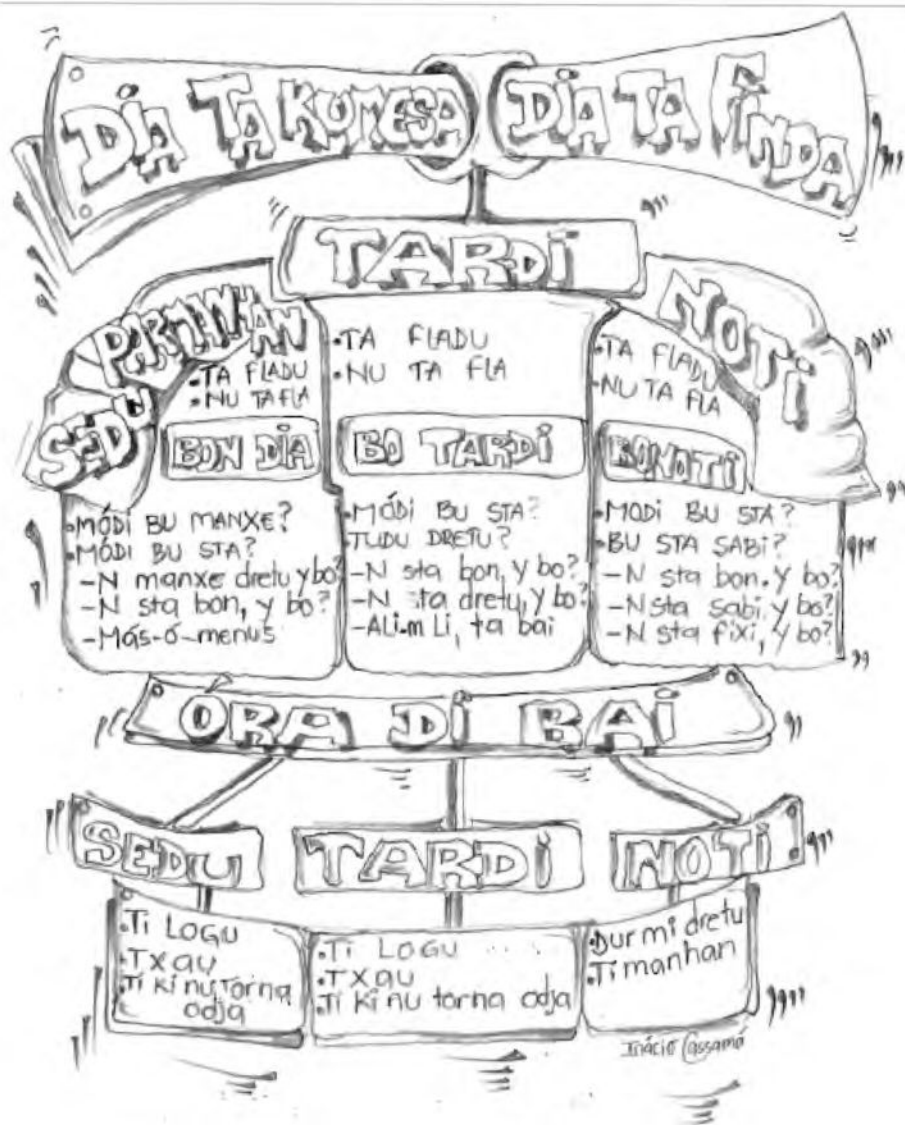 DIA TA KUMESA DIA TA FINDA
TARDI
SEDU PARMANHAN
•TA FLADU
•NU TA FLA
BON DIA
•MÓDI BU MANXE?
•MÓDI BU STA?
-N manxe dretu y bo?
-N sta bon, y bo?
-Más-ó-menus
•TA FLADU
•NU TA FLA
BO TARDI
•MÓDI BU STA?
TUDU DRETU?
-N sta bon, y bo?
-N sta dretu, y bo?
-ALi-m Li, ta bai
NOTI
•TA FLADU
•NU TA FLA
BONOTI
•MODI BU STA?
•BU STA SABI?
-N sta bon. y bo?
-N sta sabi, y bo?
-N sta fixi, y bo?
ÓRA DI BAI
SEDU
•Ti LOGU
•TXau
•Ti ki nu torna
odja
TARDI
•Ti LOGU
•TXau
Ti ki nu torna odja
NOTI
•Durmi dretu
•Ti manhan
Inácio Cassamá